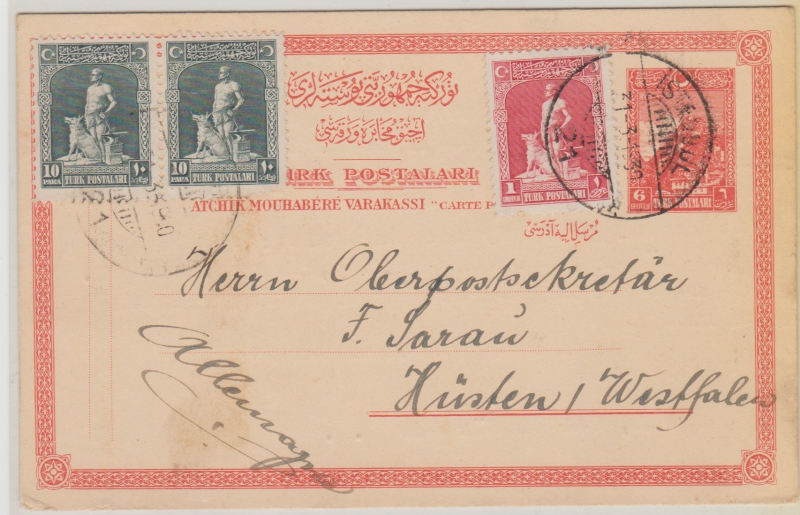 توركیه جمهوریتی پوسته لری
آچیق مخابره ورقه سی
RK POSTALARI
ATCHIK MOUHABÉRÉ VARAKASSI "CARTE P
مرسل الیه آدرسی
10 PARA ١٠
TURK POSTALARI
10 PARA ١٠
TURK POSTALARI
1 ١
TURK POSTALARI
6 ٦
TURK POSTALARI
ISTANBUL
Herrn Oberpostsekretär
F. Sarau
Hüsten / Westfalen
Allemagne